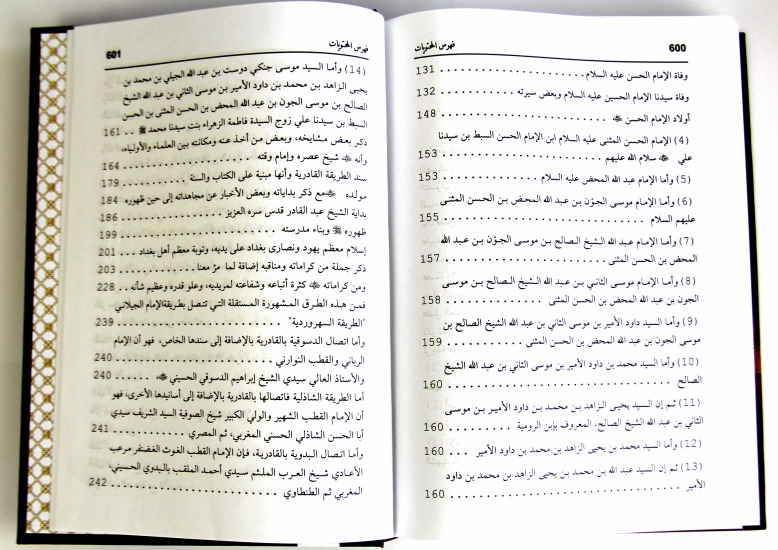 600
فهرس المحتويات
وفاة الإمام الحسن عليه السلام ........................ 131
وفاة سيدنا الإمام الحسين عليه السلام وبعض سيرته ........ 132
أولاد الإمام الحسن ﷺ ........................ 148
(4) الإمام الحسن المثنى عليه السلام ابن الإمام الحسن السبط بن سيدنا
علي ﷺ سلام الله عليهم ........................ 153
(5) وأما الإمام عبد الله المحض عليه السلام ............ 153
(6) وأما الإمام موسى الجون بن عبد الله المحض بن الحسن المثنى
عليهم السلام ........................ 155
(7) وأما الإمام عبد الله الشيخ الصالح بن موسى الجون بن عبد الله
المحض بن الحسن المثنى ........................ 157
(8) وأما الإمام موسى الثاني بن عبد الله الشيخ الصالح بن موسى
الجون بن عبد الله المحض بن الحسن المثنى ............ 158
(9) وأما السيد داود الأمير بن موسى الثاني بن عبد الله الشيخ الصالح بن
موسى الجون بن عبد الله المحض بن الحسن المثنى ........ 159
(10) وأما السيد محمد بن داود الأمير بن موسى الثاني بن عبد الله الشيخ
الصالح ........................ 160
(11) ثم إن السيد يحيى الزاهد بن محمد بن داود الأمير بن موسى
الثاني بن عبد الله الشيخ الصالح، المعروف بابن الرومية ........ 160
(12) وأما السيد محمد بن يحيى الزاهد بن محمد بن داود الأمير ... 160
(13) ثم إن السيد عبد الله بن محمد بن يحيى الزاهد بن محمد بن داود
الأمير ........................ 160
فهرس المحتويات
601
(14) وأما السيد موسى جنكي دوست بن عبد الله الجيلي بن محمد بن
يحيى الزاهد بن محمد بن داود الأمير بن موسى الثاني بن عبد الله الشيخ
الصالح بن موسى الجون بن عبد الله المحض بن الحسن المثنى بن الحسن
السبط بن سيدنا علي زوج السيدة فاطمة الزهراء بنت سيدنا محمد ﷺ .. 161
ذكر بعض مشايخه، وبعض من أخذ عنه ومكانته بين العلماء والأولياء،
وأنه ﷺ شيخ عصره وإمام وقته ........................ 164
سند الطريقة القادرية وأنها مبنية على الكتاب والسنة ........ 179
مولده ﷺ مع ذكر بداياته وبعض الأخبار عن مجاهداته إلى حين ظهوره 184
بداية الشيخ عبد القادر قدس سره العزيز ............ 186
ظهوره ﷺ وبناء مدرسته ........................ 199
إسلام معظم يهود ونصارى بغداد على يديه، وتوبة معظم أهل بغداد ... 201
ذكر جملة من كراماته ومناقبه إضافة لما مر معنا ............ 203
ومن كراماته ﷺ كثرة أتباعه وشفاعته لمريديه، وعلو قدره وعظيم شأنه .. 228
فمن هذه الطرق المشهورة المستقلة التي تتصل بطريقة الإمام الجيلاني
"الطريقة السهروردية" ........................ 239
وأما اتصال الدسوقية بالقادرية بالإضافة إلى سندها الخاص، فهو أن الإمام
الرباني والقطب النوراني ........................ 240
والأستاذ العالي سيدي الشيخ إبراهيم الدسوقي الحسيني ........ 240
أما الطريقة الشاذلية فاتصالها بالقادرية بالإضافة إلى أسانيدها الأخرى، فهو
أن الإمام القطب الشهير والولي الكبير شيخ الصوفية السيد الشريف سيدي
أبا الحسن الشاذلي الحسني المغربي، ثم المصري ............ 241
وأما اتصال البدوية بالقادرية، فإن الإمام القطب الغوث الغضنفر مرعب
الأعادي شيخ العرب الملثم سيدي أحمد الملقب بالبدوي الحسيني،
المغربي ثم الطنطاوي ........................ 242